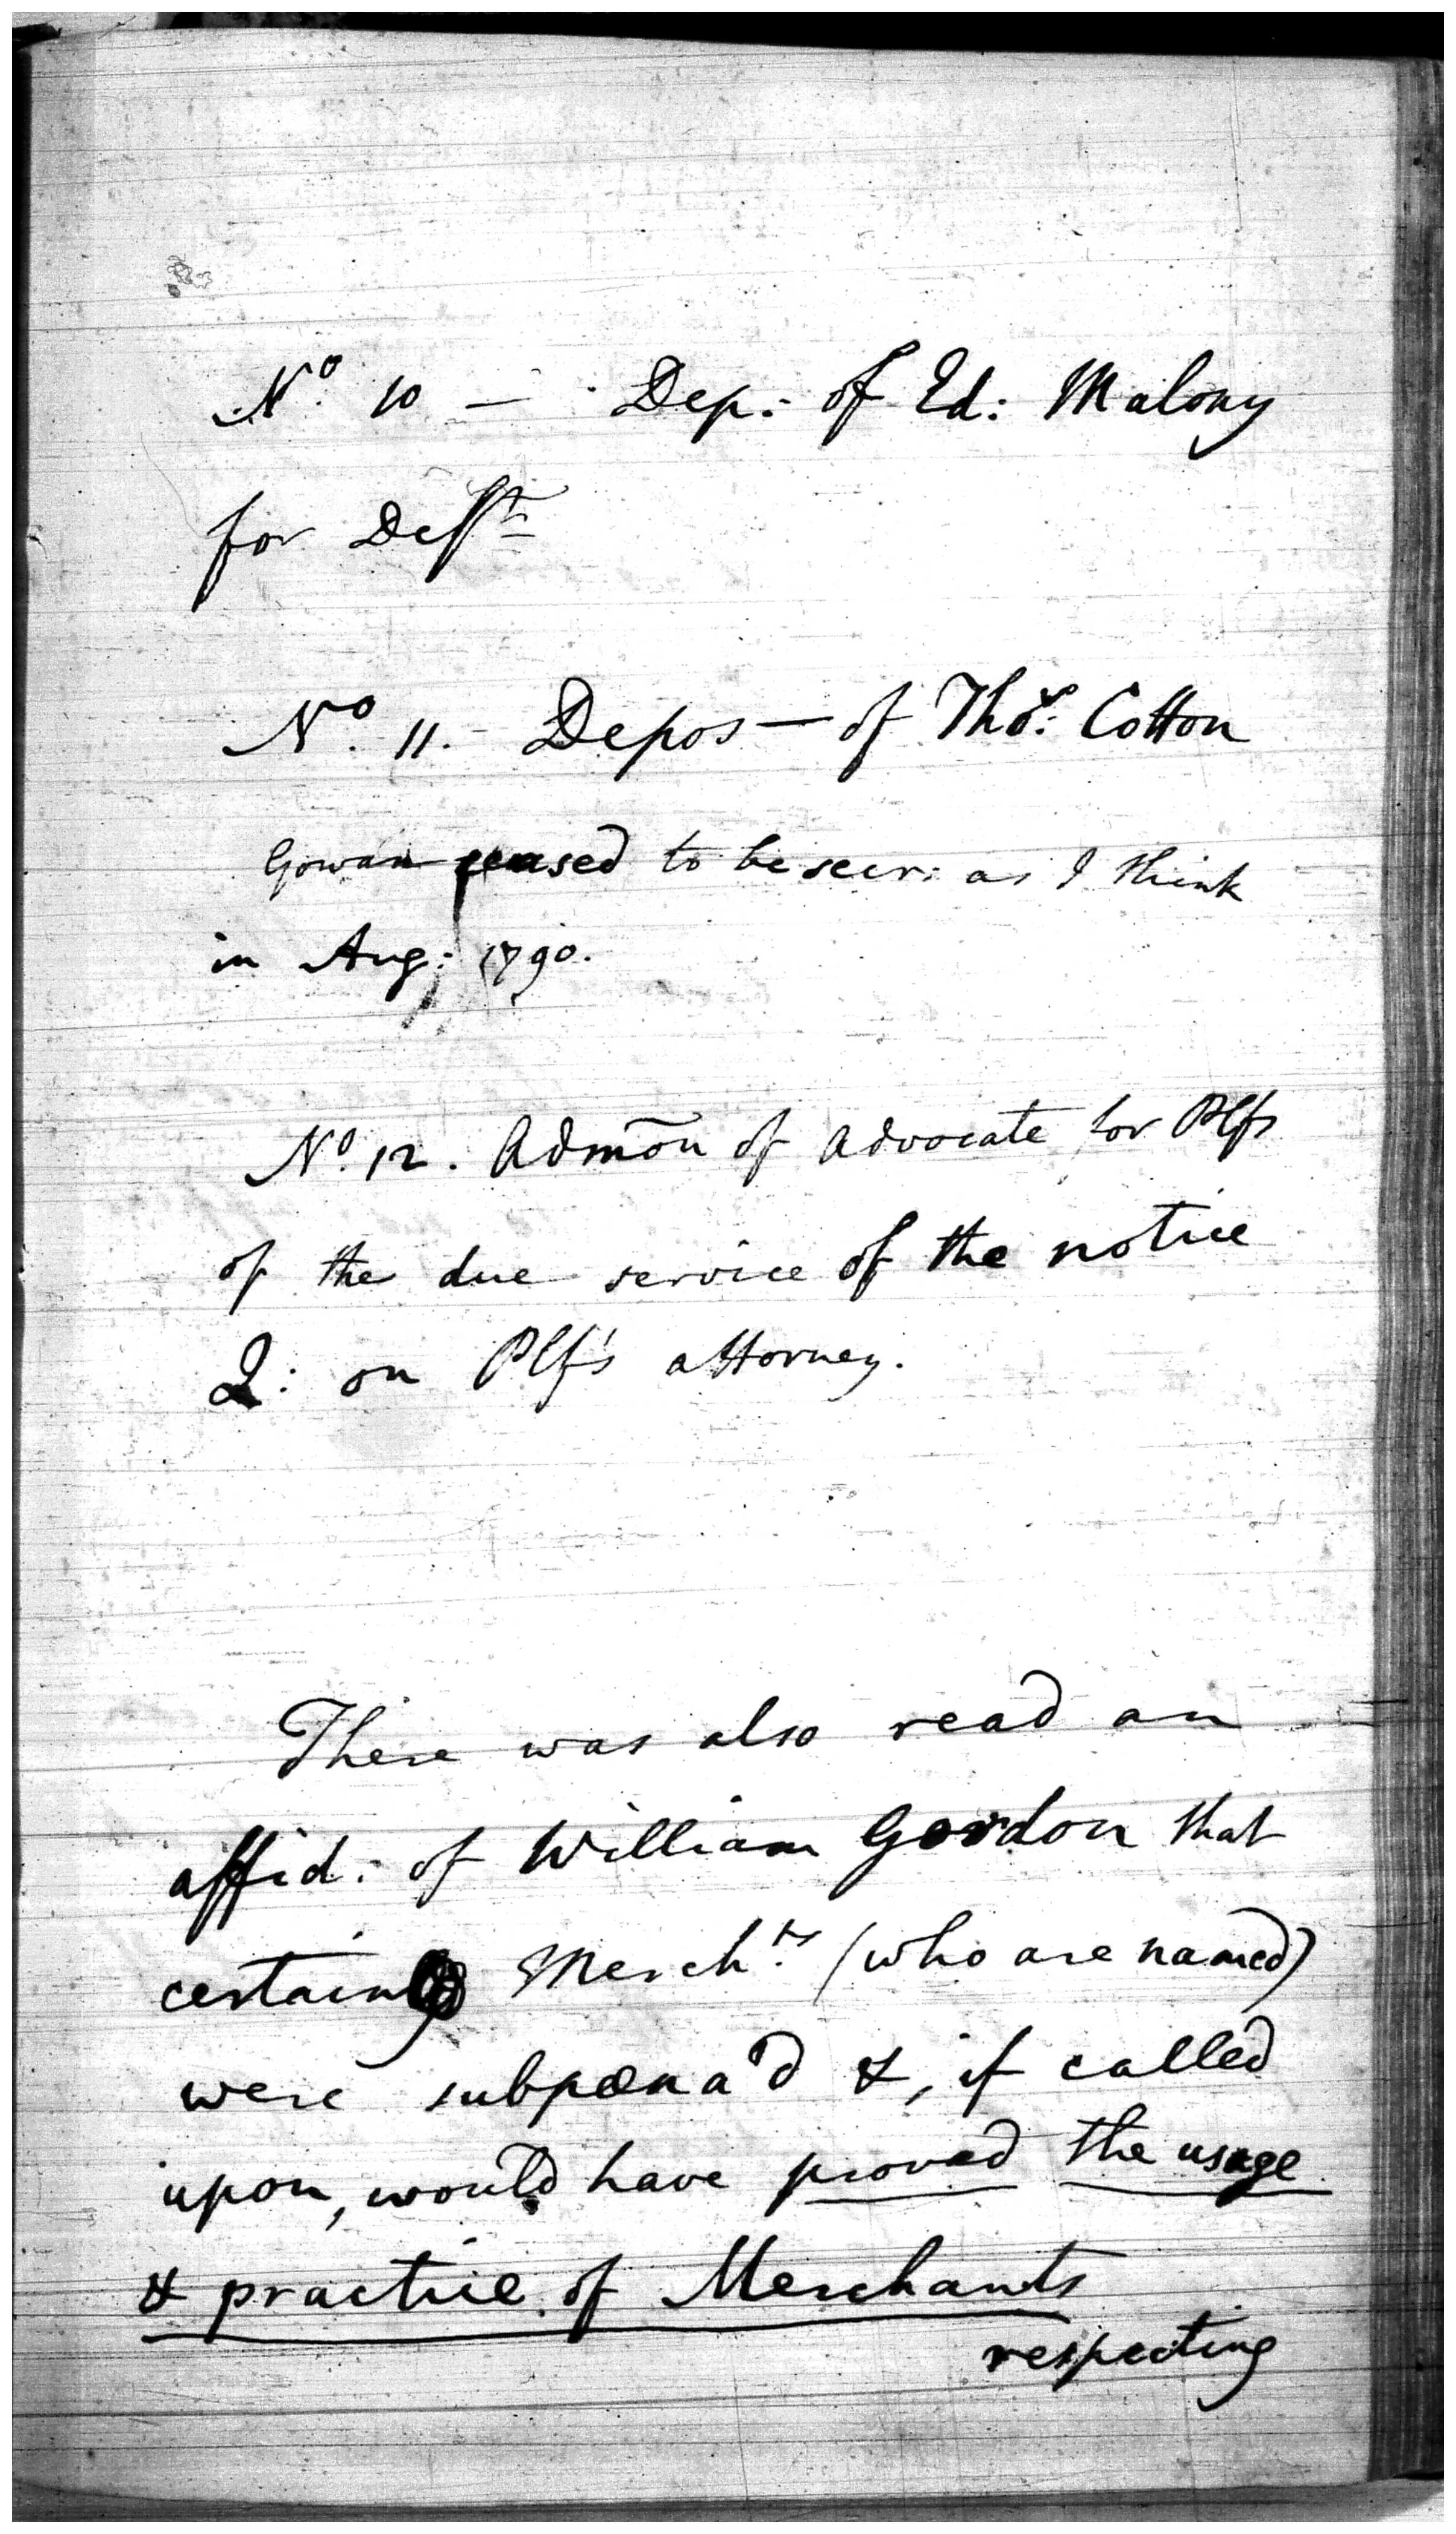 No. 10 — Dep: of Ed: Malony
for Deft:
No. 11. Depos— of Thos: Cotton
Gowan ceased to be seen as I think
in Aug: 1790.
No. 12. Admõn of Advocate for Plfs
of the due service of the notice
2: on Plf's attorney.
There was also read an
affid: of William Gordon that
certain Merch.ts (who are named)
were subpœna'd &, if called
upon, would have proved the usage
& practice of Merchants
respecting